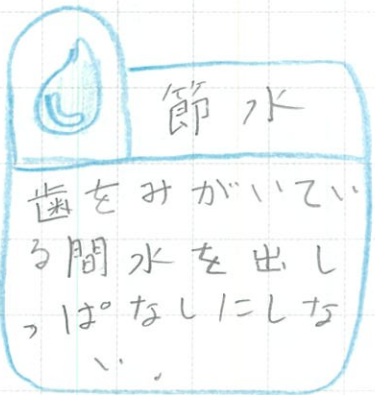 節水
歯をみがいてい
る間水を出し
っぱなしにしな
い.